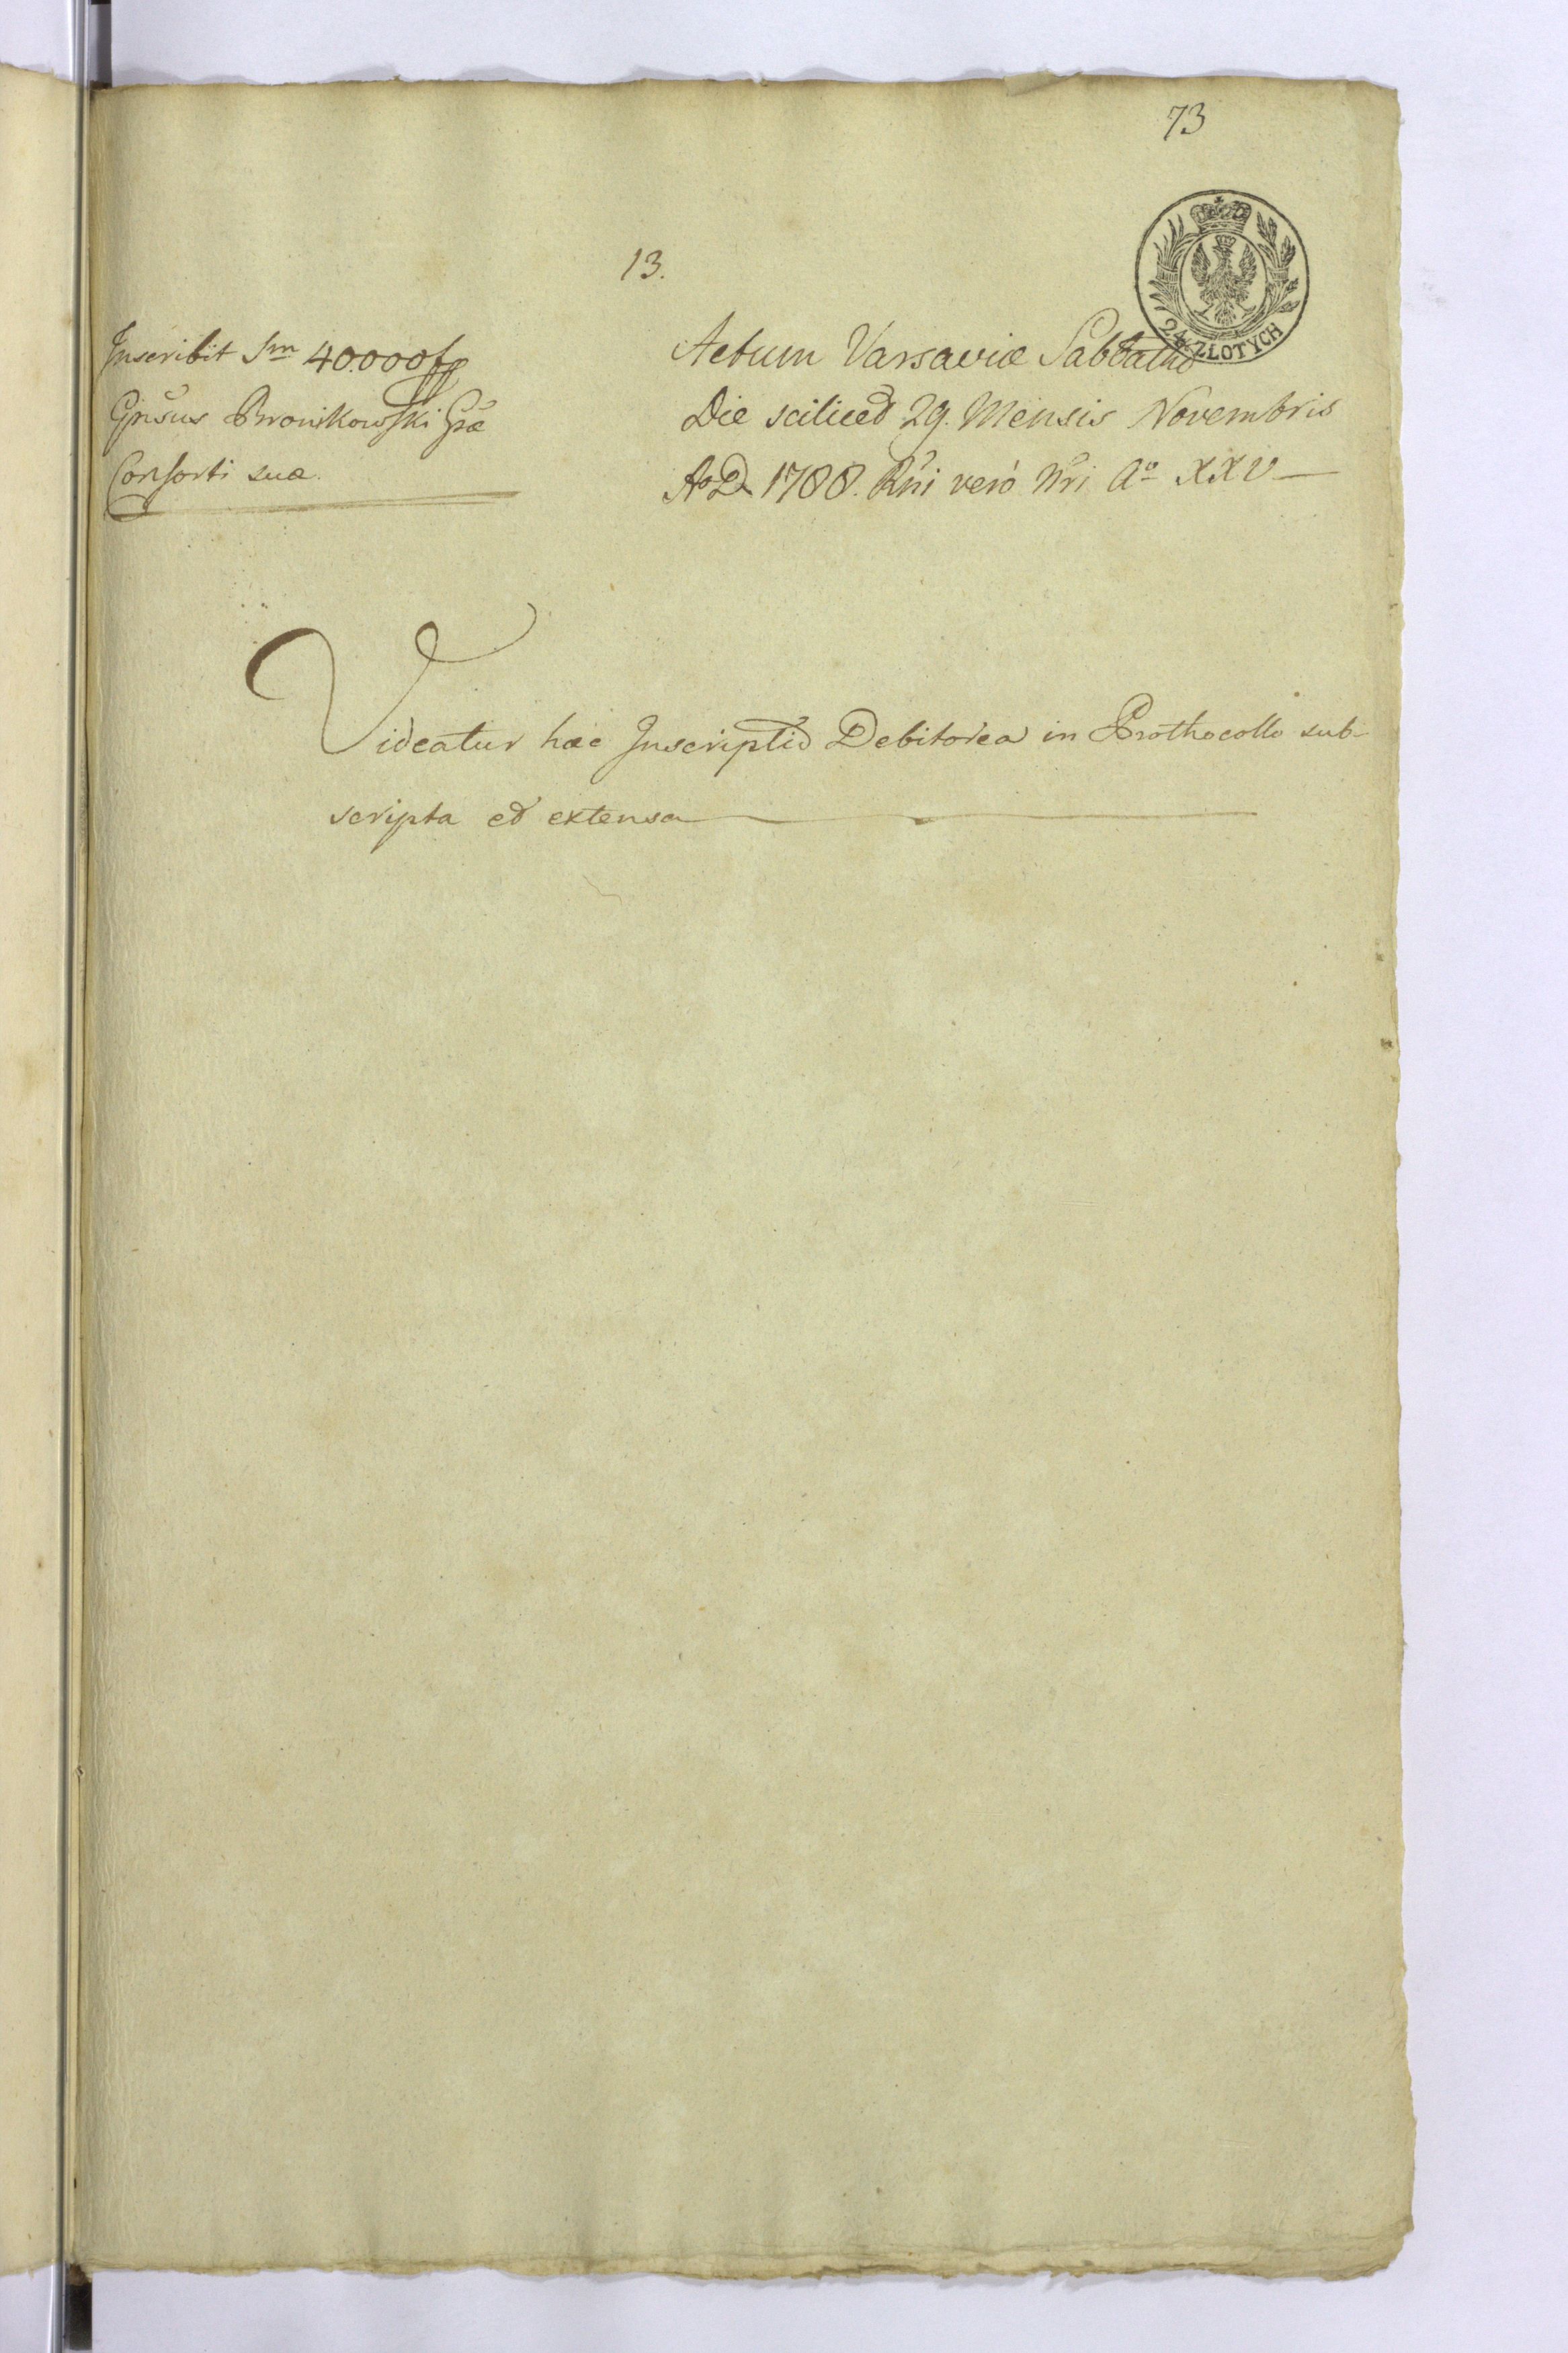 73
24. ZŁOTYCH
13.
Inscribit Sm 40.000 fp
Gnsus Bronikowski Gsae
Consorti suae.
Actum Varsaviae Sabbatho
Die scilicet 29. Mensis Novembris
Ao D. 1788. Rni verò Nri Aº XXV
Videatur haec Inscriptio Debitorea in Prothocollo sub-
scripta et extensa